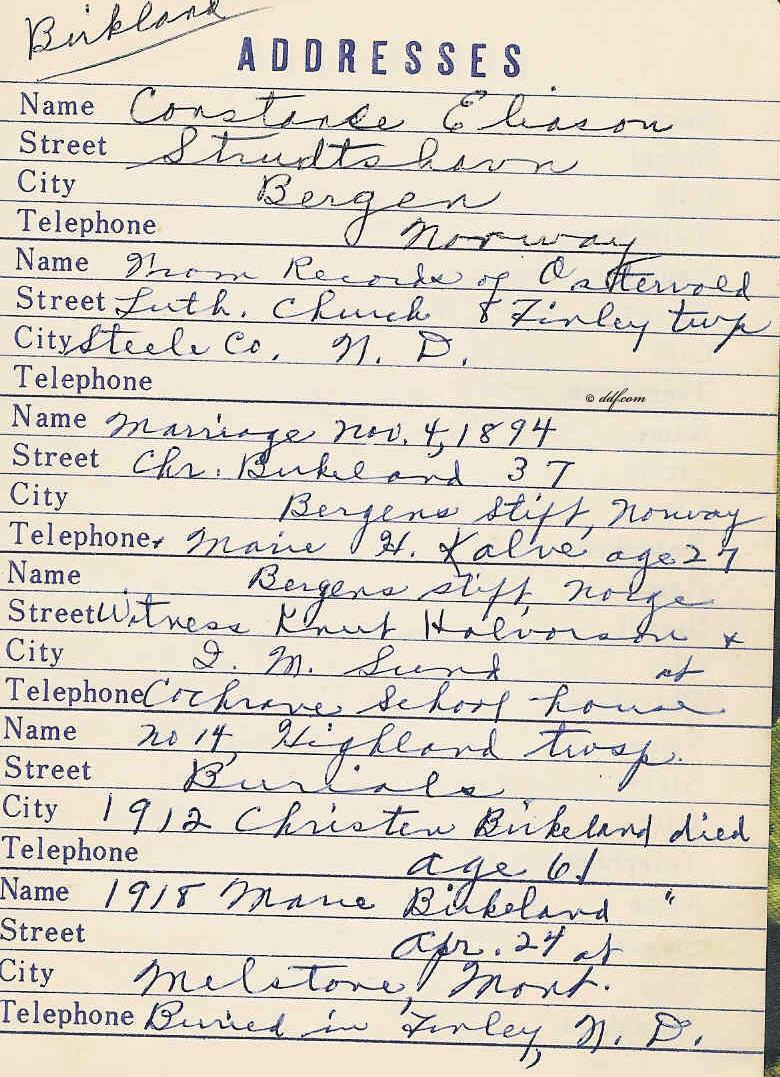 Birkland
ADDRESSES
Name Constance Eliason
Street Strudtshavn
City Bergen
Telephone Norway
Name From Records of Ostervold
Street Luth. Church & Finley twp
City Steele Co. N. D.
Telephone
© ddf.com
Name Marriage Nov. 4, 1894
Street Chr. Birkeland 37
City Bergens Stift, Norway
Telephone + Marie H. Kalve age 27
Name Bergens stift, Norge
Street Witness Knut Halvorson +
City I. M. Sund at
Telephone Cochrane School house
Name no 14, Highland twsp.
Street Burials
City 1912 Christen Birkeland died
Telephone age 61
Name 1918 Marie Birkeland "
Street Apr. 24 at
City Melstone, Mont.
Telephone Buried in Finley, N. D.